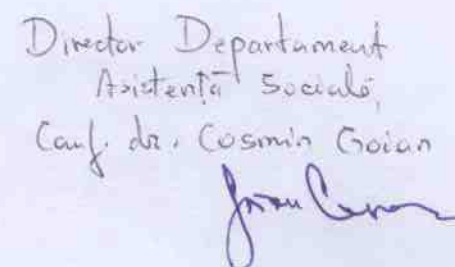 Director Departament
Asistență Socială,
Conf. dr. Cosmin Goian